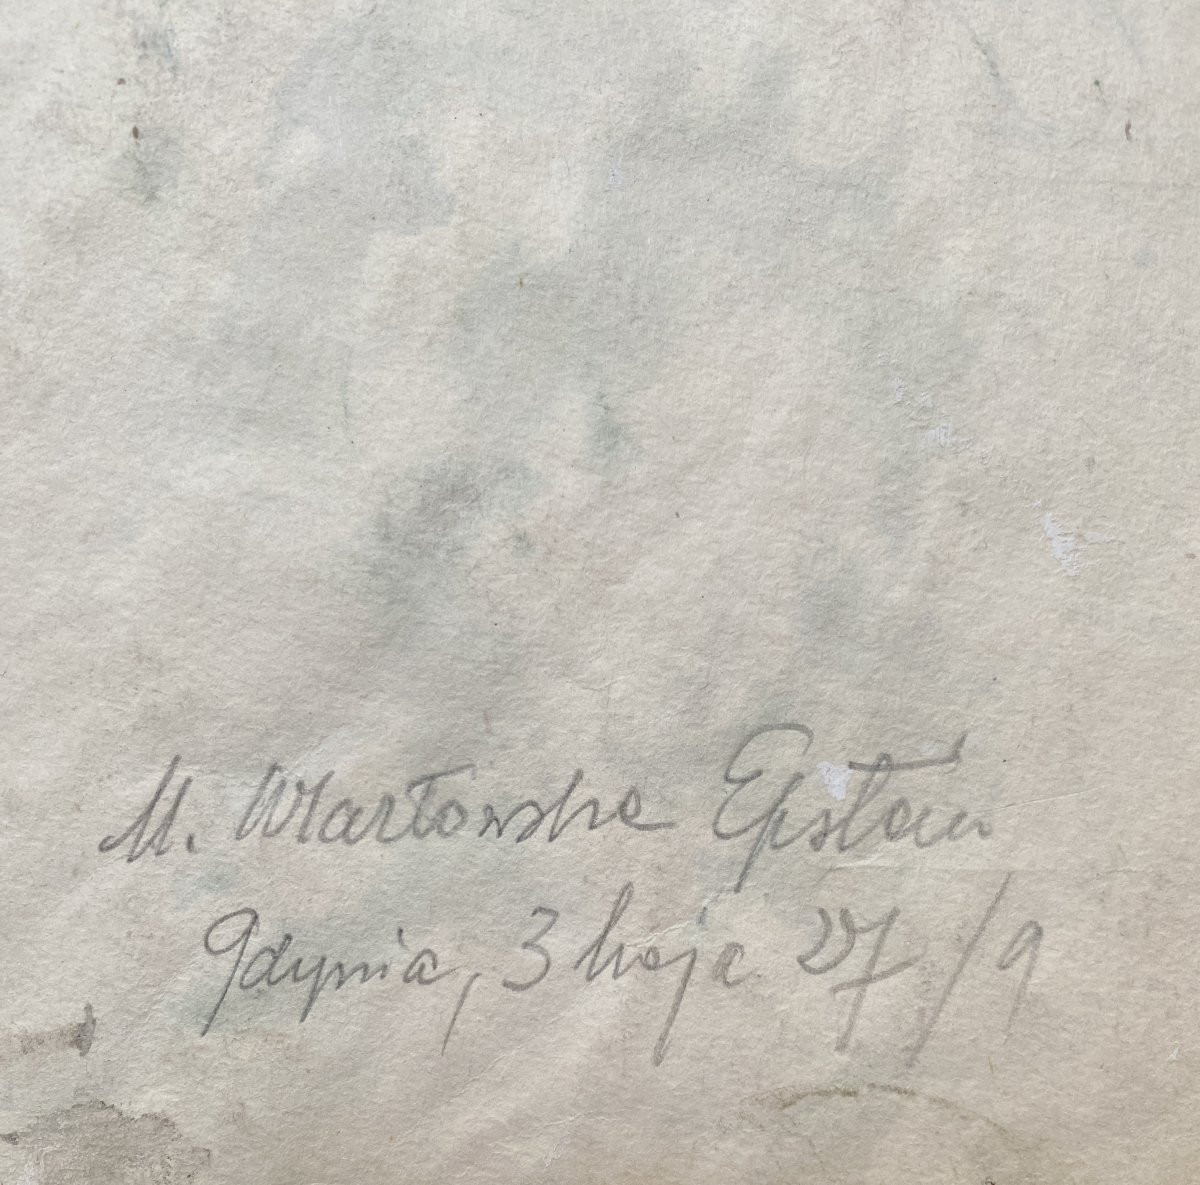 M. Wartowska Epstein
Gdynia, 3 Maja 27/9